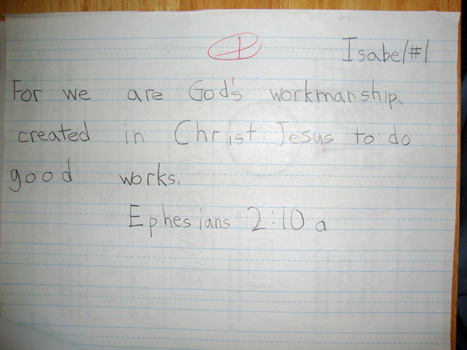 Isabel #1
For we are God's workmanship,
created in Christ Jesus to do
good works.
Ephesians 2:10 a